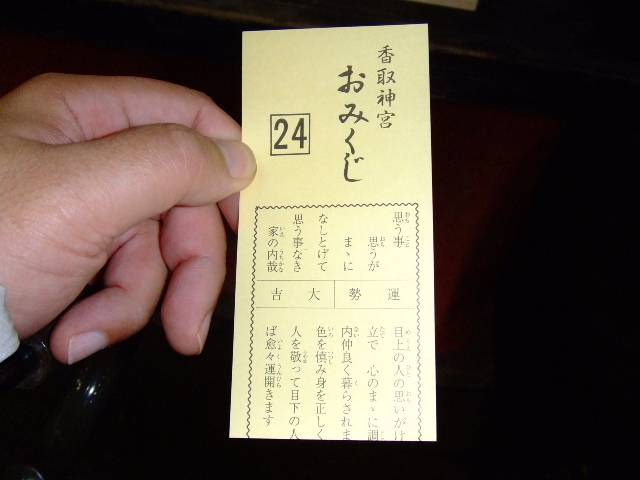 香取神宮
おみくじ
24
思う事
思うが
まゝに
なしとげて
思う事なき
家の内哉
運勢
大吉
目上の人の思いがけ
立で 心のまゝに調
内仲良く暮らされま
色を慎み身を正しく
人を敬って目下の人
ば愈々運開きます